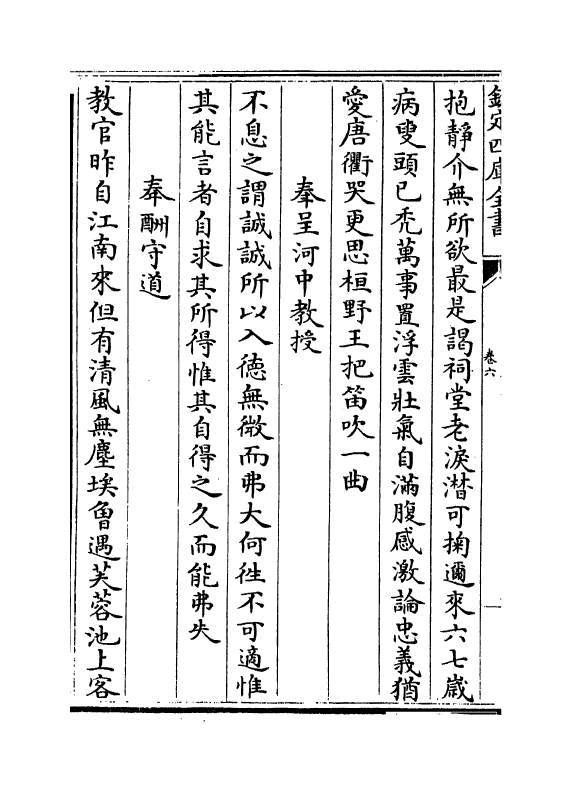 欽定四庫全書
卷六
抱靜介無所欲最是謁祠堂老淚潸可掬邇來六七歲
病叟頭已禿萬事置浮雲壯氣自滿腹感激論忠義猶
愛唐衢哭更思桓野王把笛吹一曲
奉呈河中教授
不息之謂誠誠所以入德無微而弗大何徃不可適惟
其能言者自求其所得惟其自得之久而能弗失
奉酬守道
教官昨自江南來但有清風無塵埃曾遇芙蓉池上客